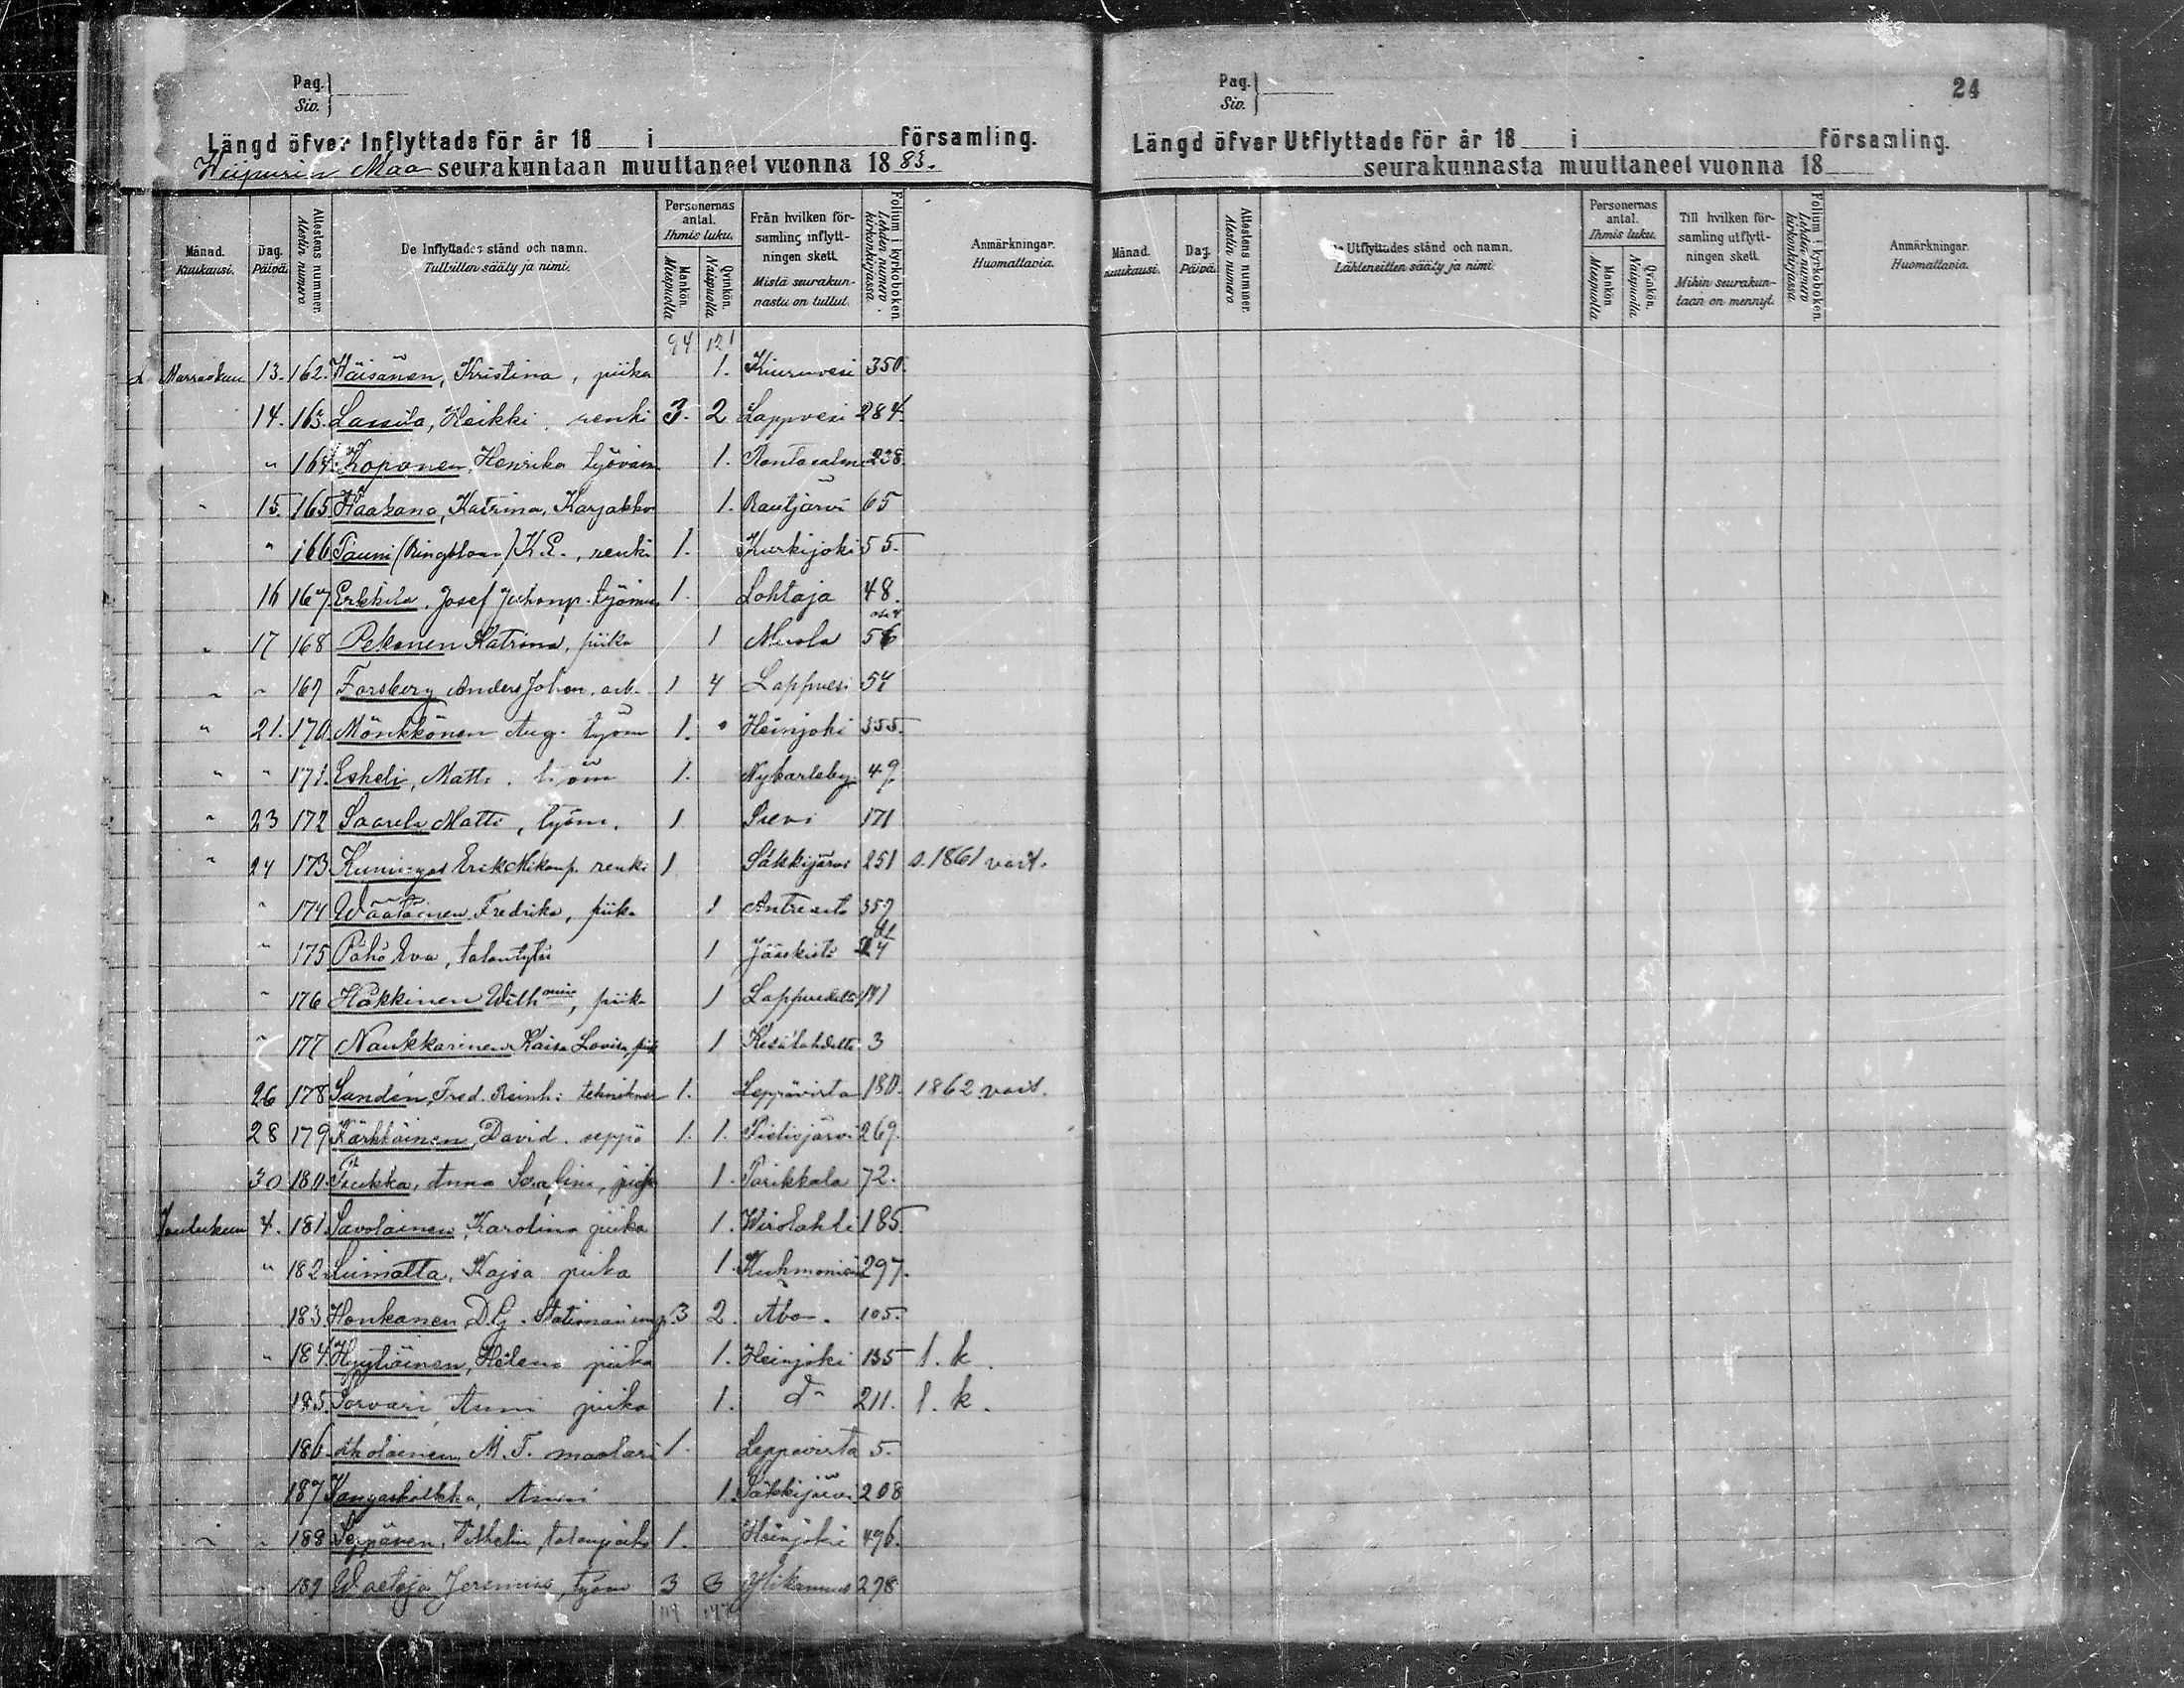 Pag.
Siv.
Längd öfver Inflyttade för år 18 i församling.
Wiipurin Maa seurakuntaan muuttaneet vuonna 1883.
Månad. Kuukausi.
Dag. Päivä.
Attestens nummer. Atestin numero
De Inflyttades stånd och namn. Tulleitten sääty ja nimi.
Personernas antal. Ihmis luku.
Mankön. Miespuolia
Qvinkön. Naispuolia
Från hvilken församling inflyttningen skett. Mistä seurakunnasta on tullut.
Folium i kyrkoboken. Lehden numero kirkonkirjassa.
Anmärkningar. Huomattavia.
94 121
Marraskuu 13. 162. Häisänen, Kristina, piika 1. Kiuruvesi 350.
14. 163. Lassila, Heikki, renki 3. 2 Lappvesi 284.
" 164. Koponen, Henrika 1. Rantasalmi 238.
" 15. 165 Haakana, Katrina, Karjakko 1. Rautjärvi 65
" 166 Tauni (Ringblom) K.E., renki 1. Kurkijoki 55.
16 167 Erkkila, Josef Juhonp. työmies 1. Lohtaja 48.
" 17 168 Pekonen Katrina, piika 1 Muola 56
" " 169 Forsberg Anders Johan, arb. 1 4 Lappvesi 54
" 21. 170. Mönkkönen Aug. työm 1. Heinjoki 355.
" " 171. Esheli, Matti. työm 1. Nykarleby 49.
" 23 172 Saarela Matti, työm. 1 Sievi 171
" 24 173 Kuningas Erik Mikonp. renki 1 Säkkijärvi 251 s. 1861
" 174 Wäätäinen Fredrika, piika 1 Antreasta 357
" 175 Pöhö Eva, talontytär 1 Jääskistä
" 176 Häkkinen Wilhmina, piika 1 141
" 177 Naukkarinen Kaisa Lovisa, piik 1 Kesälahdelta 3
26 178 Sundén, Fred. Reinh: 1. Leppävirta 180. 1862
28 179 Kärkkäinen, David. seppä 1. 1. Pielisjärvi 269.
30 180. Tiukka, Anna Serafina, piika 1. Parikkala 72.
Joulukuu 4. 181. Savolainen, Karolina piika 1. Wirolahti 185.
" 182 Liimatta, Kajsa piika 1. Kuhmoniemi 297.
183. Honkanen, D.G. 3 2. Åbo. 105.
" 184. Hyytiäinen, Helena piika 1. Heinjoki 135 l. k.
185. Sorvari Anni piika 1. d:o 211. l. k.
186. M. T. maalari 1. Leppävirta 5.
187 Kangaskolkka, Anni 1. Säkkijärvi 208
" " 188 Seppänen, Vilhelm, talonpoika 1. Heinjoki 496.
" 189 Waetoja Jeremias, työm 3 3 Ylikannus 278
Pag.
Siv.
24
Längd öfver Utflyttade för år 18 i församling.
seurakunnasta muuttaneet vuonna 18
Månad. Kuukausi.
Dag. Päivä.
Attestens nummer. Atestin numero
De Utflyttades stånd och namn. Lähteneitten sääty ja nimi.
Personernas antal. Ihmis luku.
Mankön. Miespuolia
Qvinkön. Naispuolia
Till hvilken församling utflyttningen skett. Mihin seurakuntaan on mennyt.
Folium i kyrkoboken. Lehden numero kirkonkirjassa.
Anmärkningar. Huomattavia.